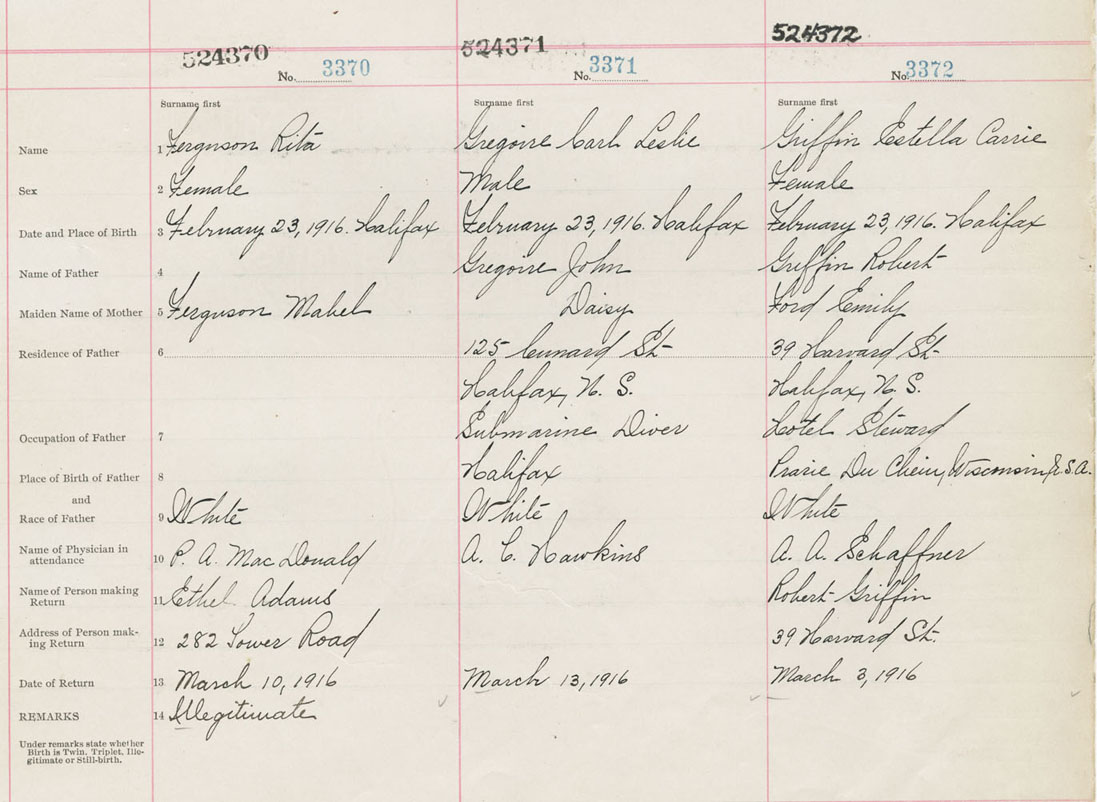 524370 524371 524372
No. 3370 No. 3371 No. 3372
Surname first Surname first Surname first
Name 1 Ferguson Rita Gregoire Carl Leslie Griffin Estella Carrie
Sex 2 Female Male Female
Date and Place of Birth 3 February 23, 1916. Halifax February 23, 1916. Halifax February 23, 1916. Halifax
Name of Father 4 Gregoire John Griffin Robert
Maiden Name of Mother 5 Ferguson Mabel Daisy Ford Emily
Residence of Father 6 125 Cunard St. 39 Harvard St.
Halifax, N. S. Halifax, N. S.
Occupation of Father 7 Submarine Diver Hotel Steward
Place of Birth of Father 8 Halifax Prarie Du Chein, Wisconsin, U.S.A.
and
Race of Father 9 White White White
Name of Physician in
attendance 10 P. A. MacDonald A. C. Hawkins A. A. Schaffner
Name of Person making
Return 11 Ethel Adams Robert Griffin
Address of Person mak-
ing Return 12 282 Tower Road 39 Harvard St.
Date of Return 13 March 10, 1916 March 13, 1916 March 3, 1916
REMARKS 14 Illegitimate
Under remarks state whether
Birth is Twin, Triplet, Ille-
gitimate or Still-birth.